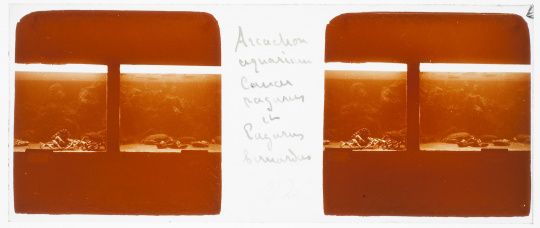 Arcachon
aquarium
Cancer
pagurus
et
Pagurus
bernardus